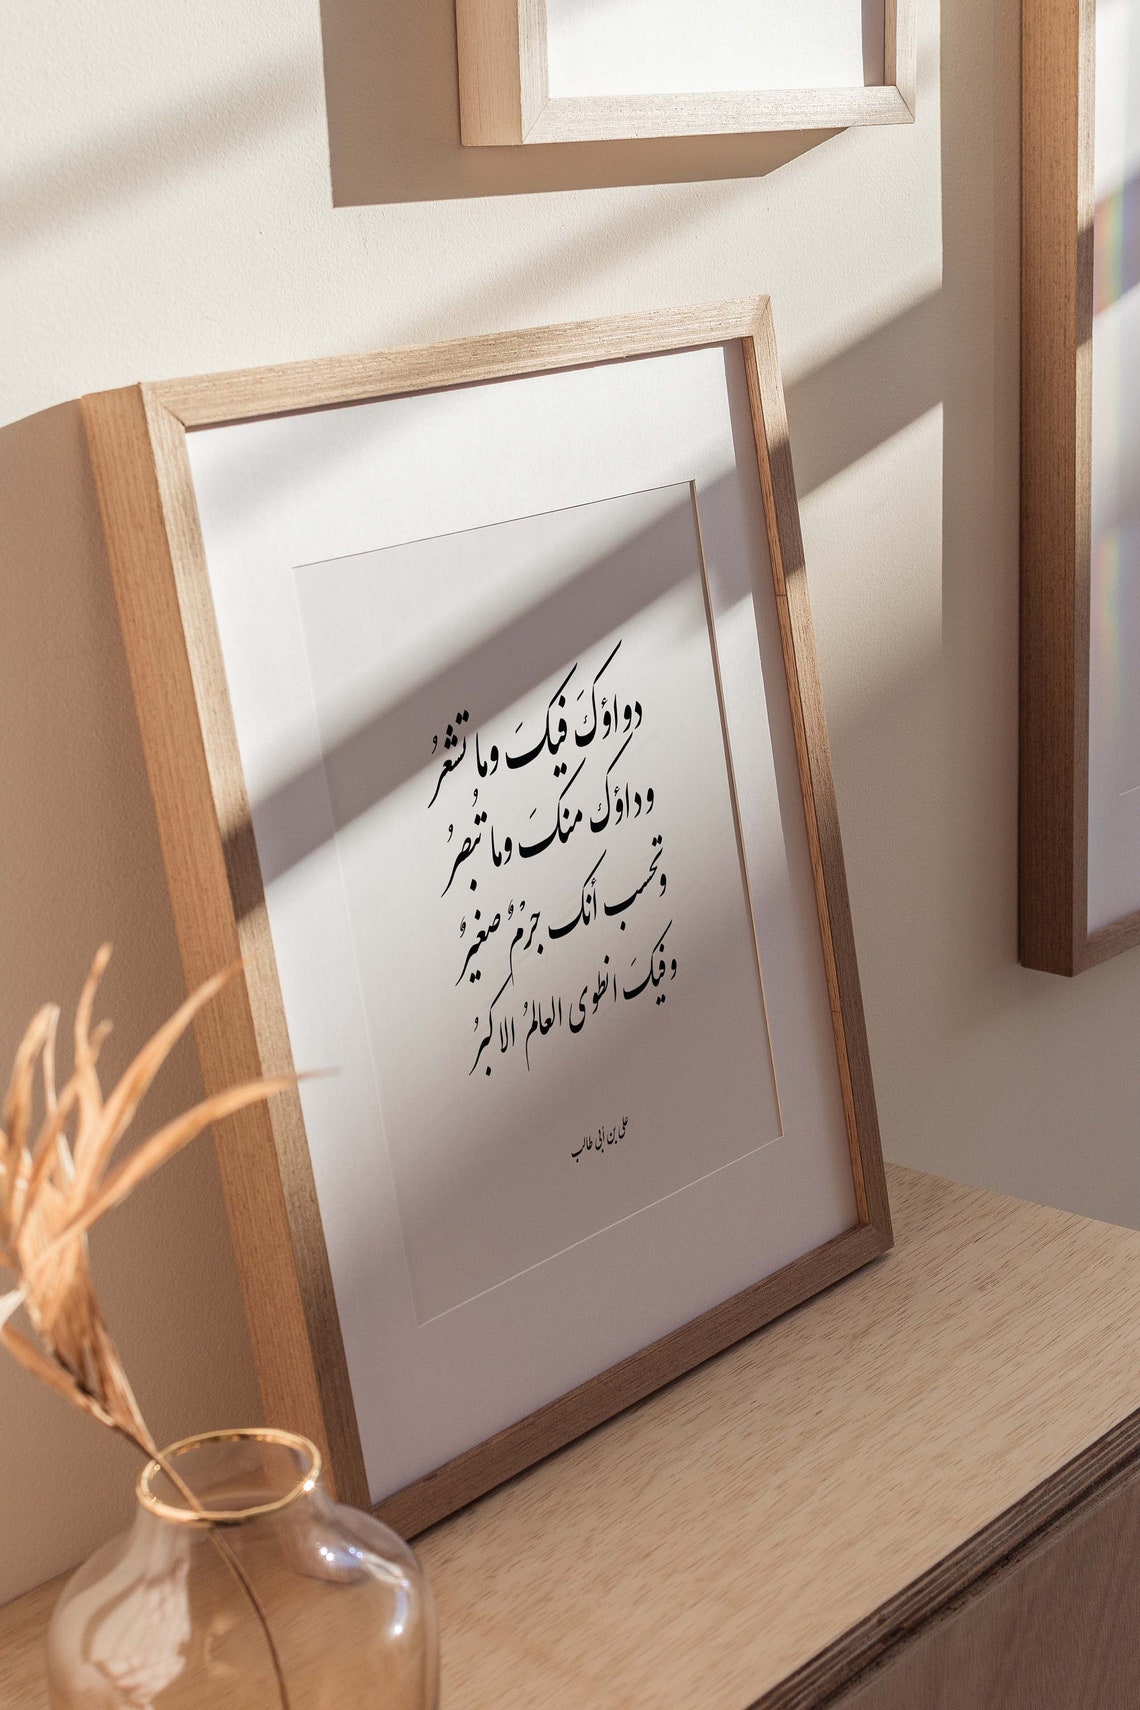 دواؤكَ فيكَ وما تشعُرُ
وداؤك منكَ وما تُبصرُ
وتحسب أنك جرْمٌ صغيرٌ
وفيكَ انطوى العالمُ الاكبرُ
على بن أبي طالب